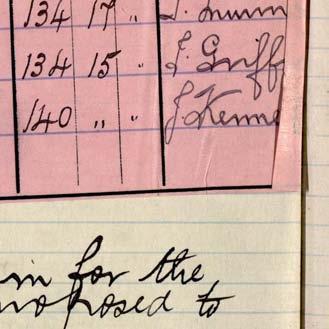 134 17 "
134 15 " J. Griff
140 " " J Kenne
in for the
roposed to